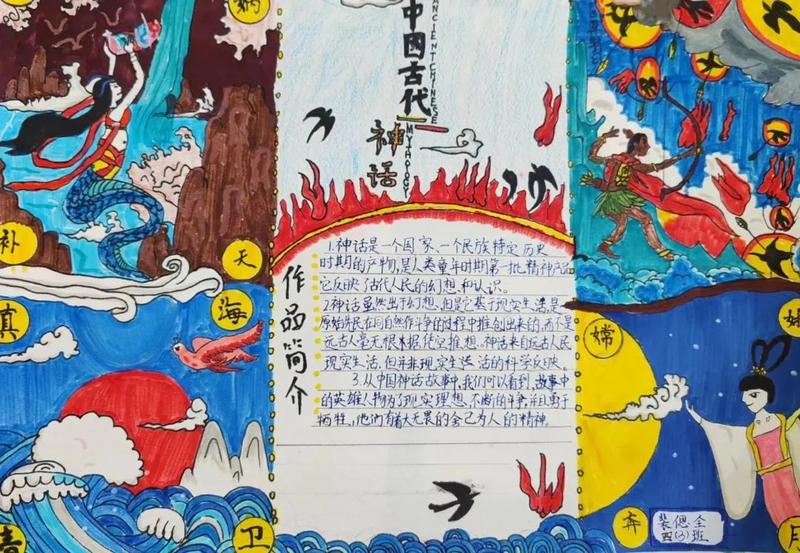 中国古代
ANCIENT CHINESE MYTHOLOGY
神话
补
天
海
卫
作品简介
1.神话是一个国家、一个民族特定历史
时期的产物,是人类童年时期第一批精神产品
它反映古代人民的幻想和认识。
2.神话虽然出于幻想,但是它基于现实生活是
原始先民在同自然作斗争的过程中推创出来的,而不是
远古人毫无根据凭空推想.神话来自远古人民
现实生活,但并非现实生活的科学反映。
3.从中国神话故事中,我们可以看到,故事中
的英雄人物为了现实理想,不断的斗争并且勇于
牺牲,他们有着大无畏的舍己为人的精神。
嫦
奔
月
裴偲全
四(3)班